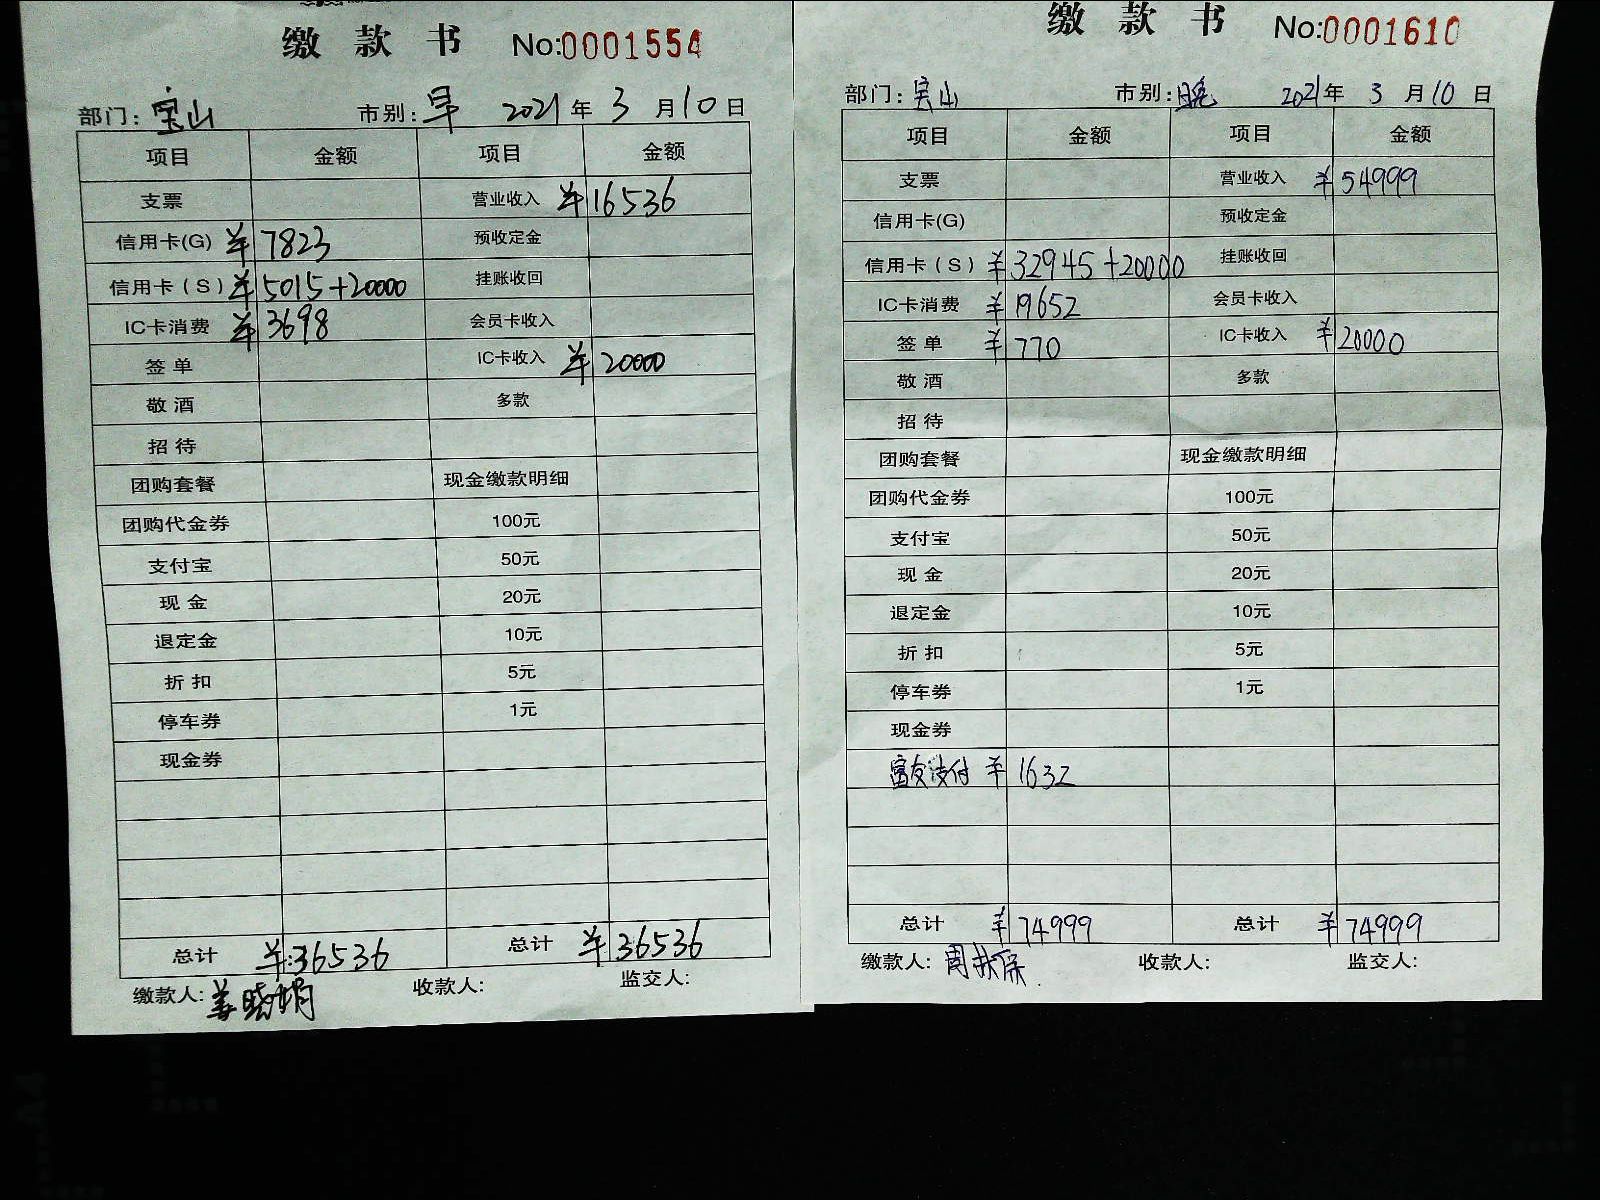 缴 款 书 No:0001554
部门: 宝山 市别: 早 2021 年 3 月 10 日
项目 金额 项目 金额
支票 营业收入 ¥16536
信用卡(G) ¥7823 预收定金
信用卡(S) ¥5015+20000 挂账收回
IC卡消费 ¥3698 会员卡收入
签 单 IC卡收入 ¥20000
敬 酒 多款
招 待
团购套餐 现金缴款明细
团购代金券 100元
支付宝 50元
现 金 20元
退定金 10元
折 扣 5元
停车券 1元
现金券
总计 ¥:36536 总计 ¥36536
缴款人: 姜晓娟 收款人: 监交人:
缴 款 书 No:0001610
部门: 宝山 市别: 晚 2021 年 3 月 10 日
项目 金额 项目 金额
支票 营业收入 ¥54999
信用卡(G) 预收定金
信用卡(S) ¥32945+20000 挂账收回
IC卡消费 ¥19652 会员卡收入
签 单 ¥770 IC卡收入 ¥20000
敬 酒 多款
招 待
团购套餐 现金缴款明细
团购代金券 100元
支付宝 50元
现 金 20元
退定金 10元
折 扣 5元
停车券 1元
现金券
富友支付 ¥1632
总计 ¥74999 总计 ¥74999
缴款人: 周 收款人: 监交人: